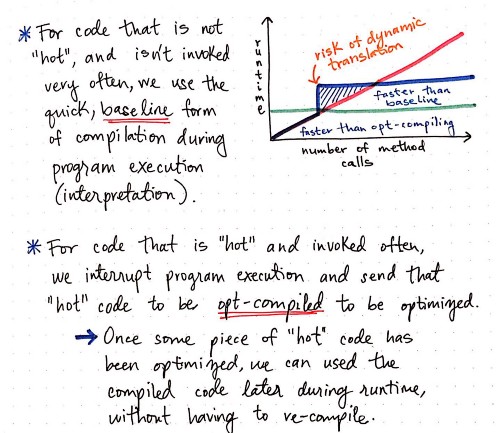 * For code that is not
"hot", and isn't invoked
very often, we use the
quick, baseline form
of compilation during
program execution
(interpretation).
runtime
risk of dynamic
translation
faster than
baseline
faster than opt-compiling
number of method
calls
* For code that is "hot" and invoked often,
we interrupt program execution and send that
"hot" code to be opt-compiled to be optimized.
→ Once some piece of "hot" code has
been optimized, we can used the
compiled code later during runtime,
without having to re-compile.